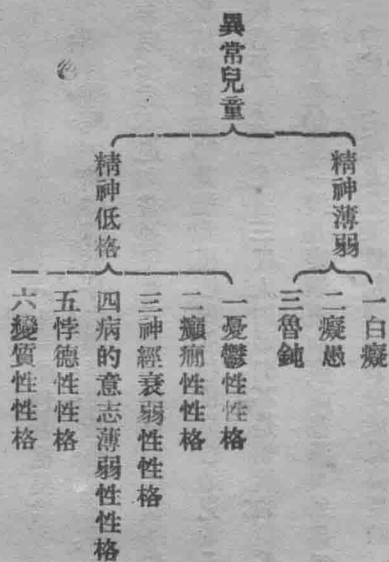 異常兒童
精神薄弱
一白癡
二癡愚
三魯鈍
精神低格
一憂鬱性性格
二癲癎性性格
三神經衰弱性性格
四病的意志薄弱性性格
五悖德性性格
六變質性性格